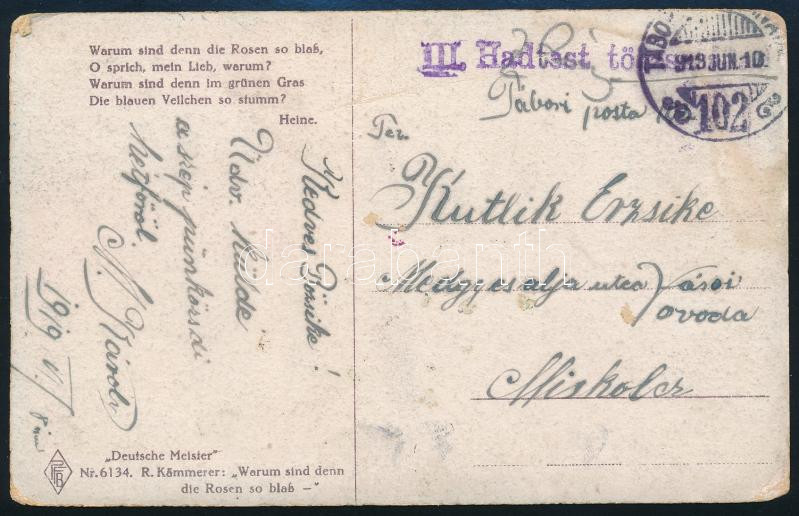 Warum sind denn die Rosen so blaß,
O sprich, mein Lieb, warum?
Warum sind denn im grünen Gras
Die blauen Veilchen so stumm?
Heine.
Kedves Bözsike!
Üdv. küldé
a szép pünkösdi
hétföröl
N. Károly
1919 VI/8
III. Hadtest
918 JUN. 10.
102
Tábori posta
Kutlik Erzsike
Medgyesalja utca Városi
ovoda
Miskolcz
„Deutsche Meister”
Nr. 6134. R. Kämmerer: „Warum sind denn
die Rosen so blaß —”
PFB
darabanth